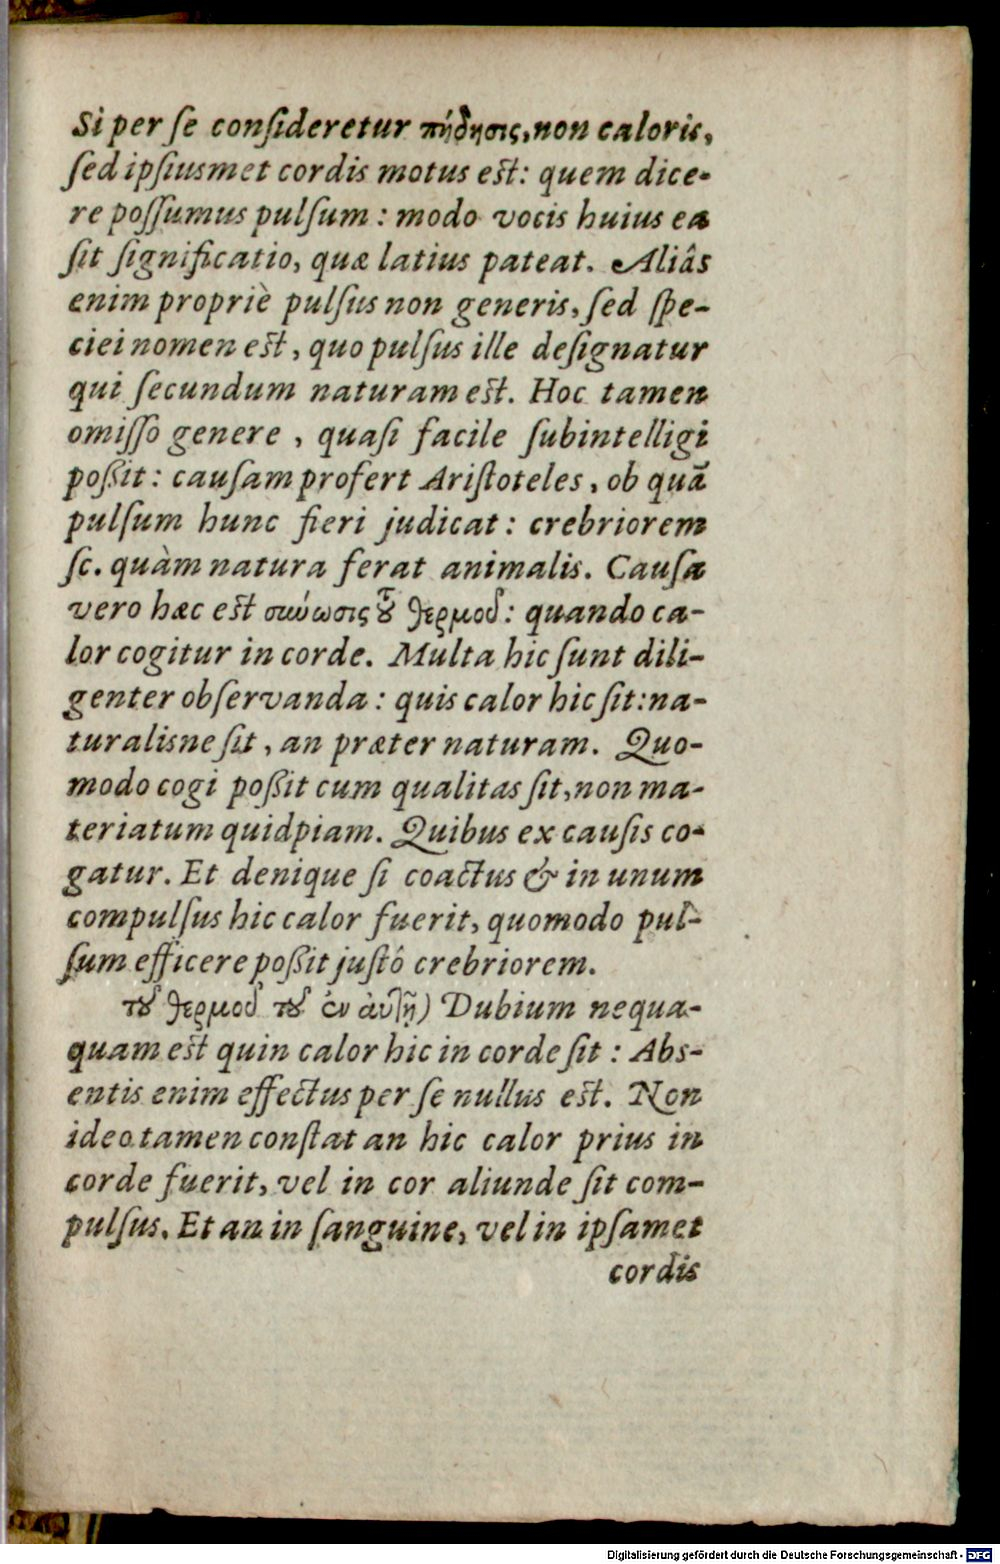 Si per ſe conſideretur πήδησις, non caloris,
ſed ipſiusmet cordis motus est: quem dice-
re poſſumus pulſum: modo vocis huius ea
ſit ſignificatio, quæ latius pateat. Aliâs
enim propriè pulſus non generis, ſed ſpe-
ciei nomen est, quo pulſus ille deſignatur
qui ſecundum naturam est. Hoc tamen
omiſſo genere, quaſi facile ſubintelligi
poßit: cauſam profert Ariſtoteles, ob quā
pulſum hunc fieri judicat: crebriorem
ſc. quàm natura ferat animalis. Cauſa
vero hæc est σύωσις τοῦ θερμοῦ: quando ca-
lor cogitur in corde. Multa hic ſunt dili-
genter obſervanda: quis calor hic ſit: na-
turalisne ſit, an præter naturam. Quo-
modo cogi poßit cum qualitas ſit, non ma-
teriatum quidpiam. Quibus ex cauſis co-
gatur. Et denique ſi coactus & in unum
compulſus hic calor fuerit, quomodo pul-
ſum efficere poßit justô crebriorem.
τοῦ θερμοῦ τοῦ ἐν ἀυτῇ) Dubium nequa-
quam est quin calor hic in corde ſit: Abs-
entis enim effectus per ſe nullus est. Non
ideo tamen conſtat an hic calor prius in
corde fuerit, vel in cor aliunde ſit com-
pulſus. Et an in ſanguine, vel in ipſamet
cordis
Digitalisierung gefördert durch die Deutsche Forschungsgemeinschaft - DFG